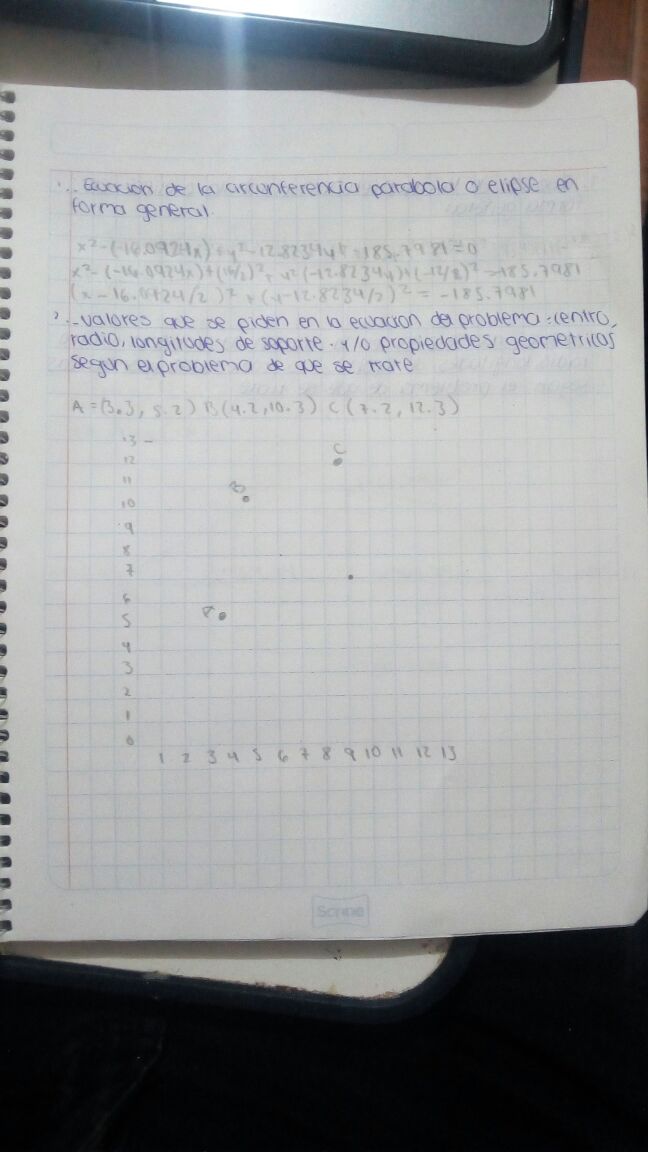 1.- Ecuación de la circunferencia parabola o elipse en
forma general.
x²-(-16.0924x)+y²-12.8234y+185.7981=0
x²-(-16.0924x)+(16/2)²+y²(-12.8234y)+(-12/2)²-185.7981
(x-16.0924/2)²+(y-12.8234/2)²=-185.7981
2.- Valores que se piden en la ecuacion del problema: centro,
radio, longitudes de soporte y/o propiedades geometricas
segun el problema de que se trate
A=(3.3, 5.2) B(4.2,10.3) C(7.2, 12.3)
13
12
C
11
B
10
9
8
7
6
5
A
4
3
2
1
0
1 2 3 4 5 6 7 8 9 10 11 12 13
Scribe